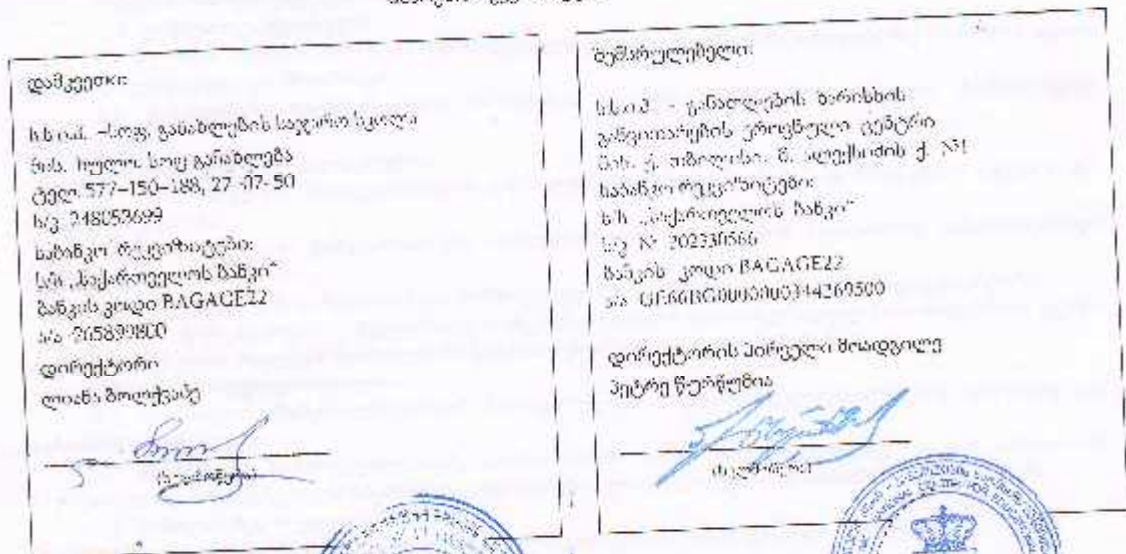 დამკვეთი:
ს.ს.ი.პ. –სოფ. განახლების საჯარო სკოლა
მის. ხულო. სოფ განახლება
ტელ. 577–150–188, 27 -07- 50
ს/კ 248053699
საბანკო რეკვიზიტები:
ს/ს „საქართველოს ბანკი“
ბანკის კოდი BAGAGE22
ა/ა 265899800
დირექტორი
ლიანა ბოლქვაძე
(ხელმოწერა)
შემსრულებელი:
ს.ს.ი.პ. - განათლების ხარისხის
განვითარების ეროვნული ცენტრი
მის. ქ. თბილისი. მ. ალექსიძის ქ. №1
საბანკო რეკვიზიტები:
ს/ს „საქართველოს ბანკი“
ს/კ № 202330566
ბანკის კოდი BAGAGE22
ა/ა
დირექტორის პირველი მოადგილე
პეტრე წურწუმია
(ხელმოწერა)